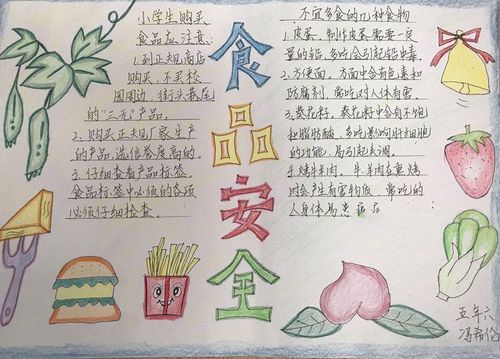 小学生购买
食品应注意:
1.到正规商店
购买,不买校
园周边、街头巷尾
的"三无"产品。
2.购买正规厂家生产
的产品,选信誉度高的。
3.仔细查看产品标签。
食品标签中必须的各项
必须仔细检查。
食品安全
不宜多食的几种食物
1.皮蛋,制作皮蛋需要一定
量的铅,多吃会引起铅中毒
2.方便面,方面中含有色素和
防腐剂,常吃对人体有害。
3.葵花籽,葵花籽中含有不饱
和脂肪酸,多吃影响肝细胞
的功能,易引起
4.烤牛羊肉,牛羊肉在熏烤
时会产生有害物质,常吃的
人身体易患
五年六
冯希伦